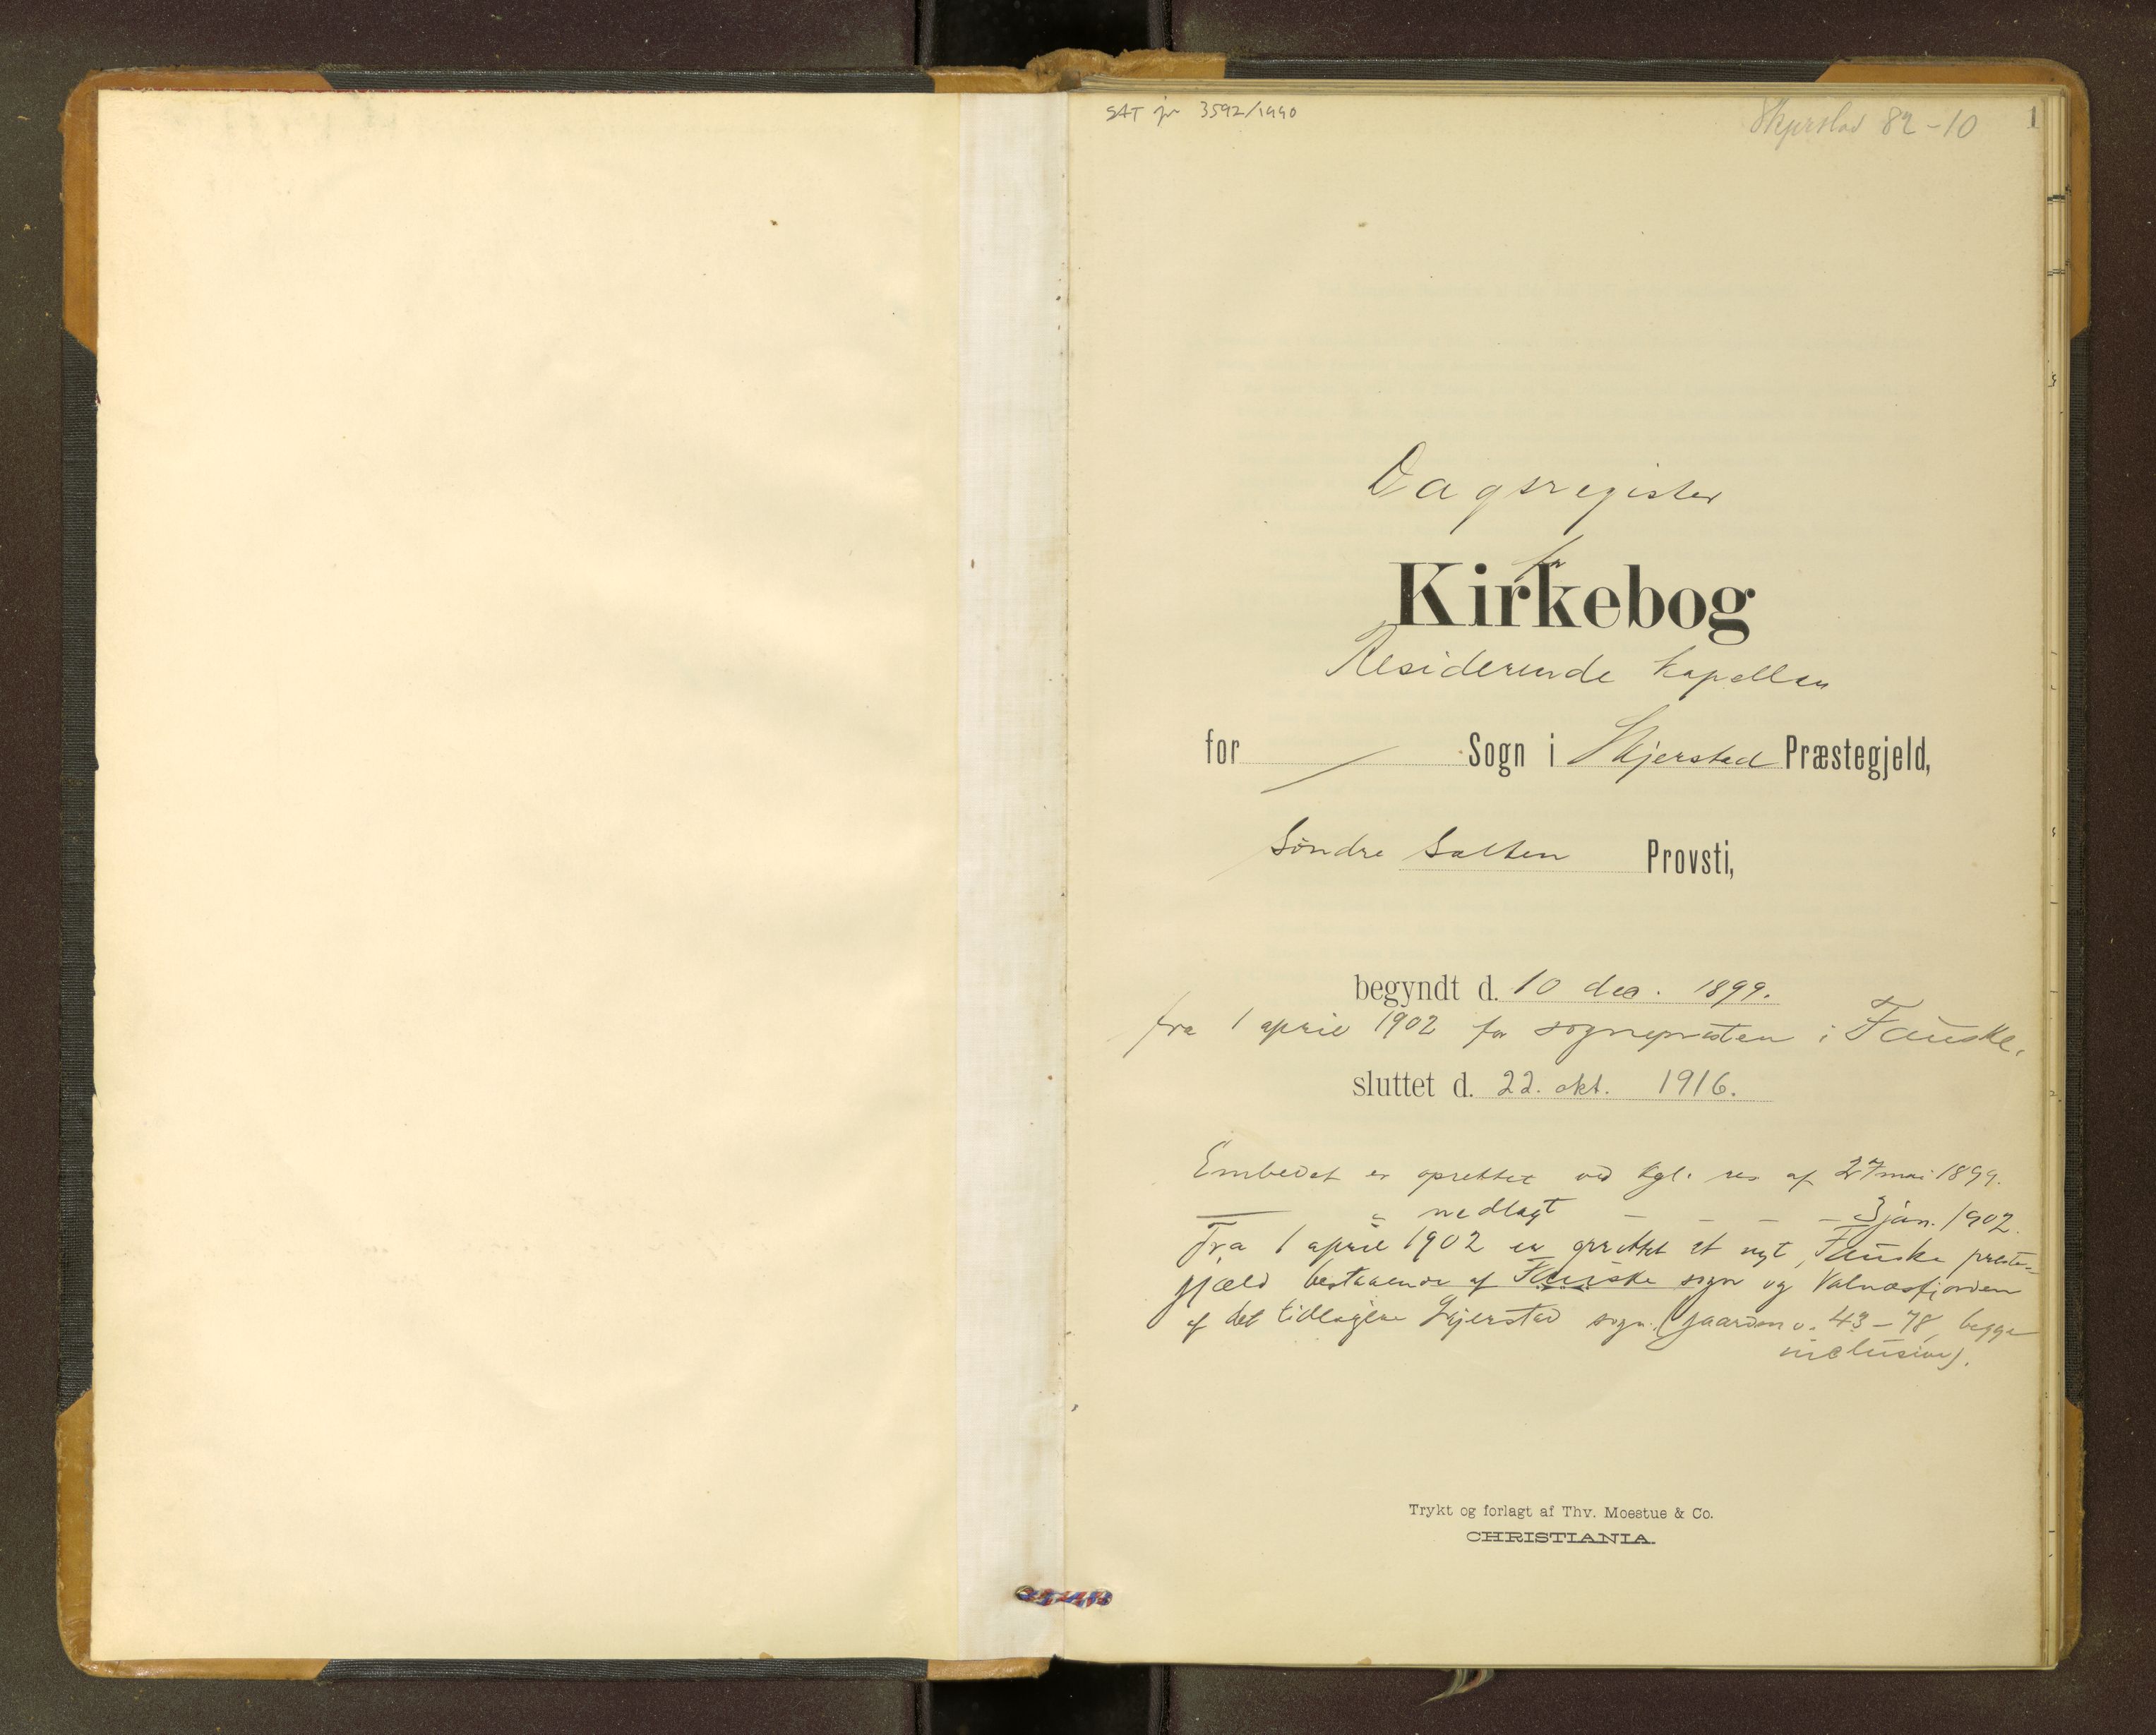 SAT jnr 3592/1990
Skjerstad 82-10
1
Dagsregister
for
Kirkebog
Residerende kapellan
for Sogn i Skjerstad Præstegjeld,
Søndre Salten Provsti,
begyndt d. 10 dec. 1899.
fra 1 april 1902 for sogneprästen i Fauske.
sluttet d. 22. okt. 1916.
Embedet er oprettet ved kgl. res af 27 mai 1899.
— " nedlagt — — — — 3 jan. 1902.
Fra 1 april 1902 er oprettet et nyt, Fauske præste-
gjæld bestaaende af Fauske sogn og Valnæsfjorden
af det tidligere Skjerstad sogn. (gaardsno. 43-78, begge
inclusive).
Trykt og forlagt af Thv. Moestue & Co.
CHRISTIANIA.